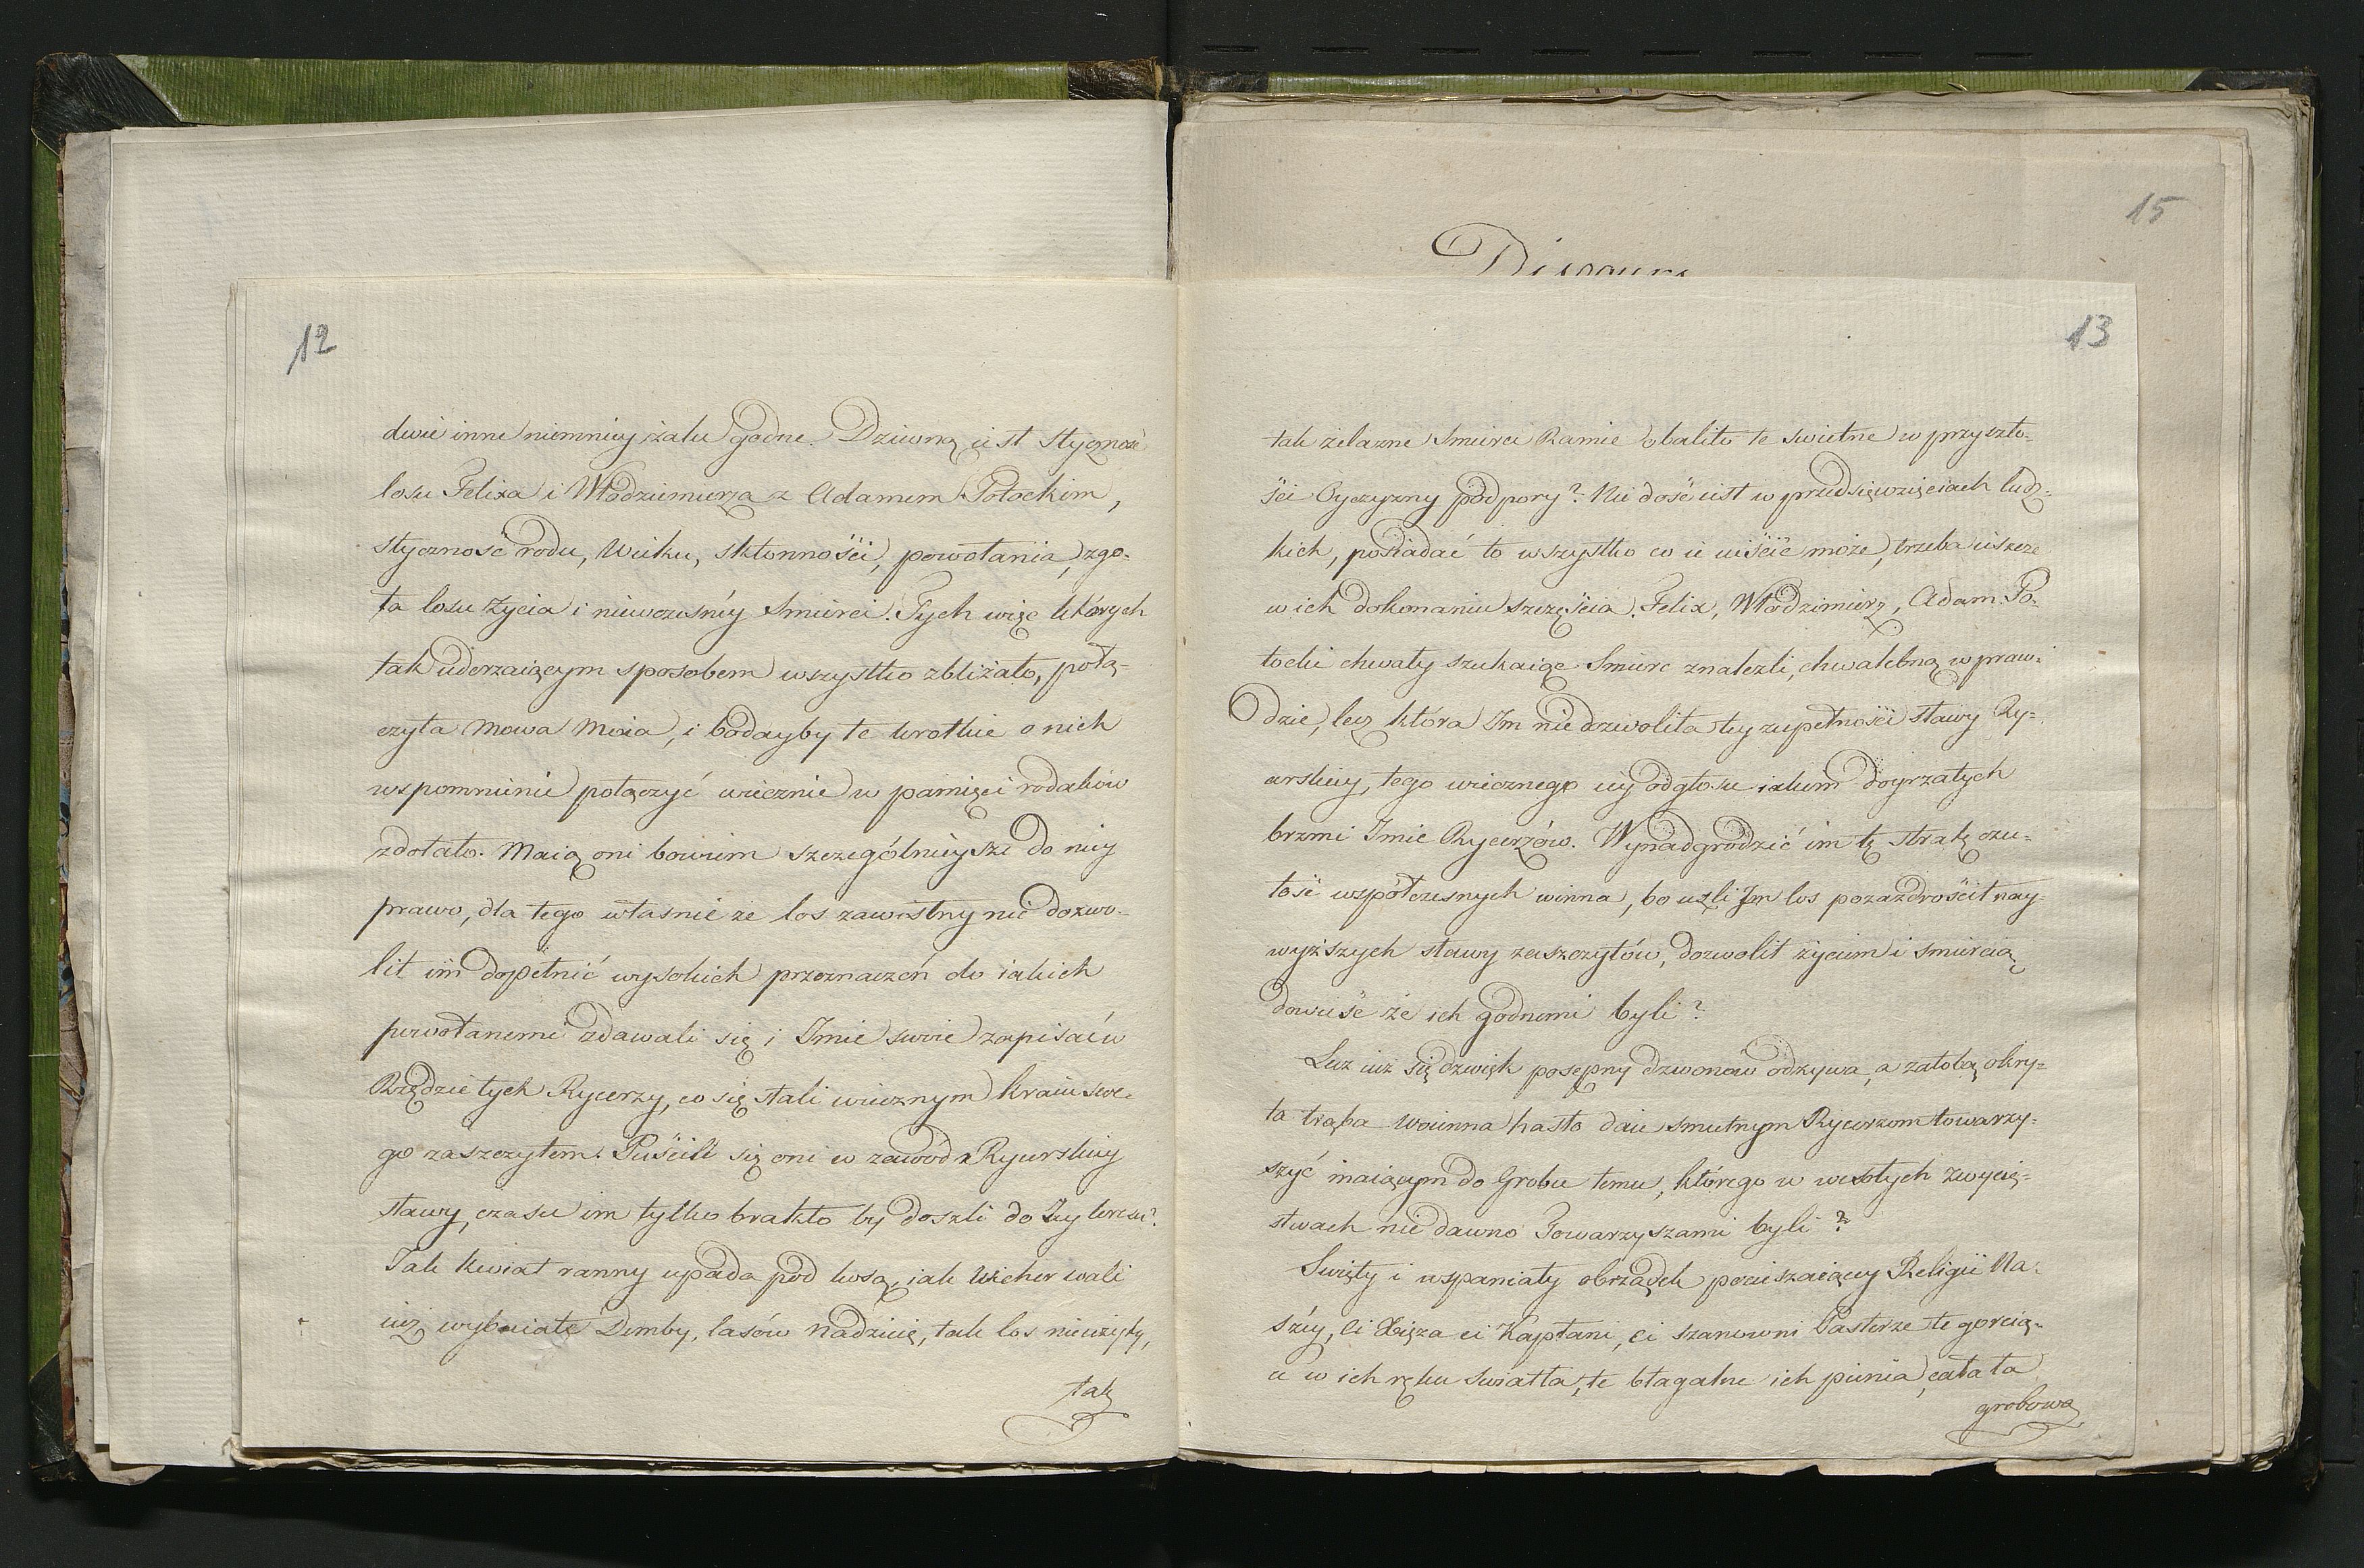 12
dwie inne niemniey żalu godne. Dziwną iest styczność
losu Felixa i Włodzimierza z Adamem Potockim,
styczność rodu, Wieku, skłonności, powołania, zgo-
ła losu życia i niewczesnéy Smierci. Tych więc których
tak uderzaiącym sposobem wszystko zbliżało, połą-
czyła Mowa Moia, i bodayby te krotkie o nich
wspomnienie połączyć wiecznie w pamięci rodaków
zdołało. Maią oni bowiem szczególnieysze do niey
prawo, dla tego własnie że los zawistny nie dozwo-
lił im dopełnić wysokich przeznaczeń do iakich
powołanemi zdawali się i Imie swoie zapisać w
Rzędzie tych Rycerzy, co się stali wiecznym kraiu swe-
go zaszczytem. Puścili się oni w zawód Rycerskiey
sławy, czasu im tylko brakło by doszli do Iey kresu.
Jak kwiat ranny upada pod kosą, iak Wicher wali
iuż wybuiałe Demby, lasów nadzieię, tak los nieużyty,
tak
15
Discours
13
tak żelazne Smierci Ramie obaliło te swietne w przyszło-
ści Oyczyzny podpory? Nie dość iest w przedsięwzięciach ludz-
kich, posiadać to wszystko co ie uiścić może, trzeba ieszcze
w ich dokonaniu szczęścia. Felix, Włodzimierz, Adam Po-
toccki chwały szukaiąc Smierc znalezli, chwalebną wpraw-
dzie, lecz która Im nie dozwoliła tey zupełności sławy Ry-
cerskiey, tego wiecznego iey odgłosu iakiem doyrzałych
brzmi Imie Rycerzów. Wynadgrodzić im tę stratę czu-
łość współczesnych winna, bo ieżli Im los pozazdrościł nay-
wyższych sławy zaszczytów, dozwolił życiem i smiercią
dowieść że ich godnemi byli?
Lecz iuż się dzwięk posępny dzwonów odzywa, a załobą okry-
ta trąba woienna hasło daie smutnym Rycerzom towarzy-
szyć maiącym do Grobu temu, którego w wesołych zwycię-
stwach nie dawno Towarzyszami byli?
Swięty i wspaniały obrządek pocieszaiącey Religii Na-
széy, Ci Xięża ci Kapłani, ci szanowni Pasterze te goreią-
ce w ich ręku swiatła, te błagalne ich pienia, cała ta
grobowa